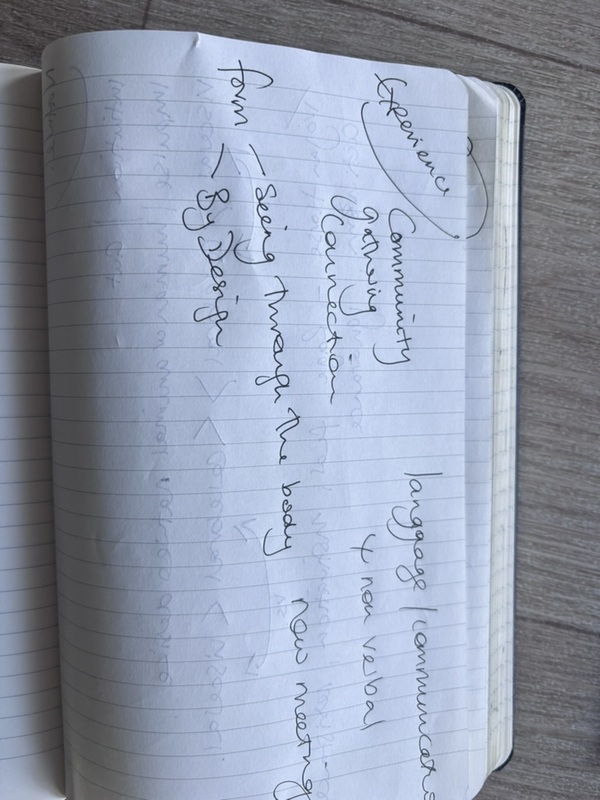 Experience
language / communicati
Community
gathering
Connection
+ non verbal
form – Seeing Through the body now meeting
– By Design